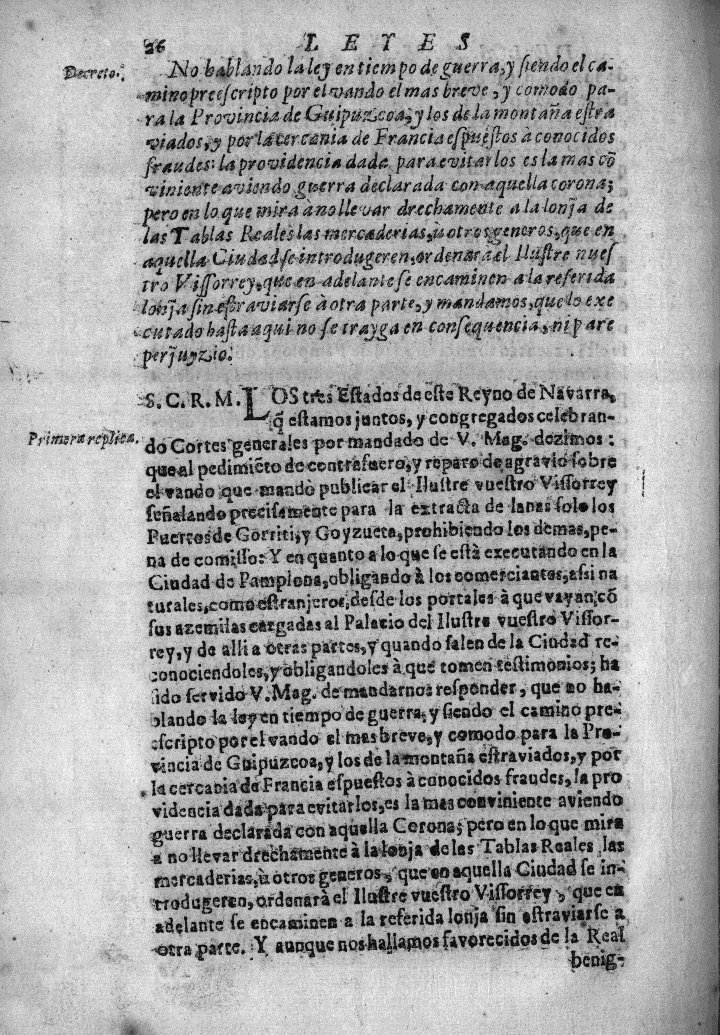 26 LEYES
Decreto.
No hablando la ley en tiempo de guerra, y siendo el ca-
mino preescripto por el vando el mas breve, y comodo pa-
ra la Provincia de Guipuzcoa, y los de la montaña estra
viados, y por la cercania de Francia espuestos à conocidos
fraudes: la providencia dada para evitarlos es la mas cõ
viniente aviendo guerra declarada con aquella corona;
pero en lo que mira à no llevar drechamente a la lonja de
las Tablas Reales las mercaderias, u otros generos, que en
aquella Ciudad se introdugeren, ordenarà el Ilustre nues
tro Vissorrey, que en adelante se encaminen a la referida
lonja sin estraviarse à otra parte, y mandamos, que lo exe
cutado hasta aqui no se trayga en consequencia, ni pare
perjuyzio.
S. C. R. M. LOS tres Estados de este Reyno de Navarra,
q̃ estamos juntos, y congregados celebran-
Primera replica.
do Cortes generales por mandado de V. Mag. dezimos:
que al pedimiẽto de contrafuero, y reparo de agravio sobre
el vando que mandò publicar el Ilustre vuestro Vissorrey
señalando precisamente para la extracta de lanas solo los
Puertos de Gorriti, y Goyzueta, prohibiendo los demas, pe-
na de comisso: Y en quanto a lo que se està executando en la
Ciudad de Pamplona, obligando à los comerciantes, assi na
turales, como estranjeros, desde los portales à que vayan cõ
sus azemilas cargadas al Palacio del Ilustre vuestro Vissor-
rey, y de alli a otras partes, y quando salen de la Ciudad re-
conociendoles, y obligandoles à que tomen testimonios; ha
sido servido V. Mag. de mandarnos responder, que no ha-
blando la ley en tiempo de guerra, y siendo el camino pre-
escripto por el vando el mas breve, y comodo para la Pro-
vincia de Guipuzcoa, y los de la montaña estraviados, y por
la cercania de Francia espuestos à conocidos fraudes, la pro
videncia dada para evitarlos, es la mas conviniente aviendo
guerra declarada con aquella Corona; pero en lo que mira
a no llevar drechamente à la lonja de las Tablas Reales las
mercaderias, ù otros generos, que en aquella Ciudad se in-
trodugeren, ordenarà el Ilustre vuestro Vissorrey, que en
adelante se encaminen a la referida lonja sin estraviarse a
otra parte. Y aunque nos hallamos favorecidos de la Real
benig-